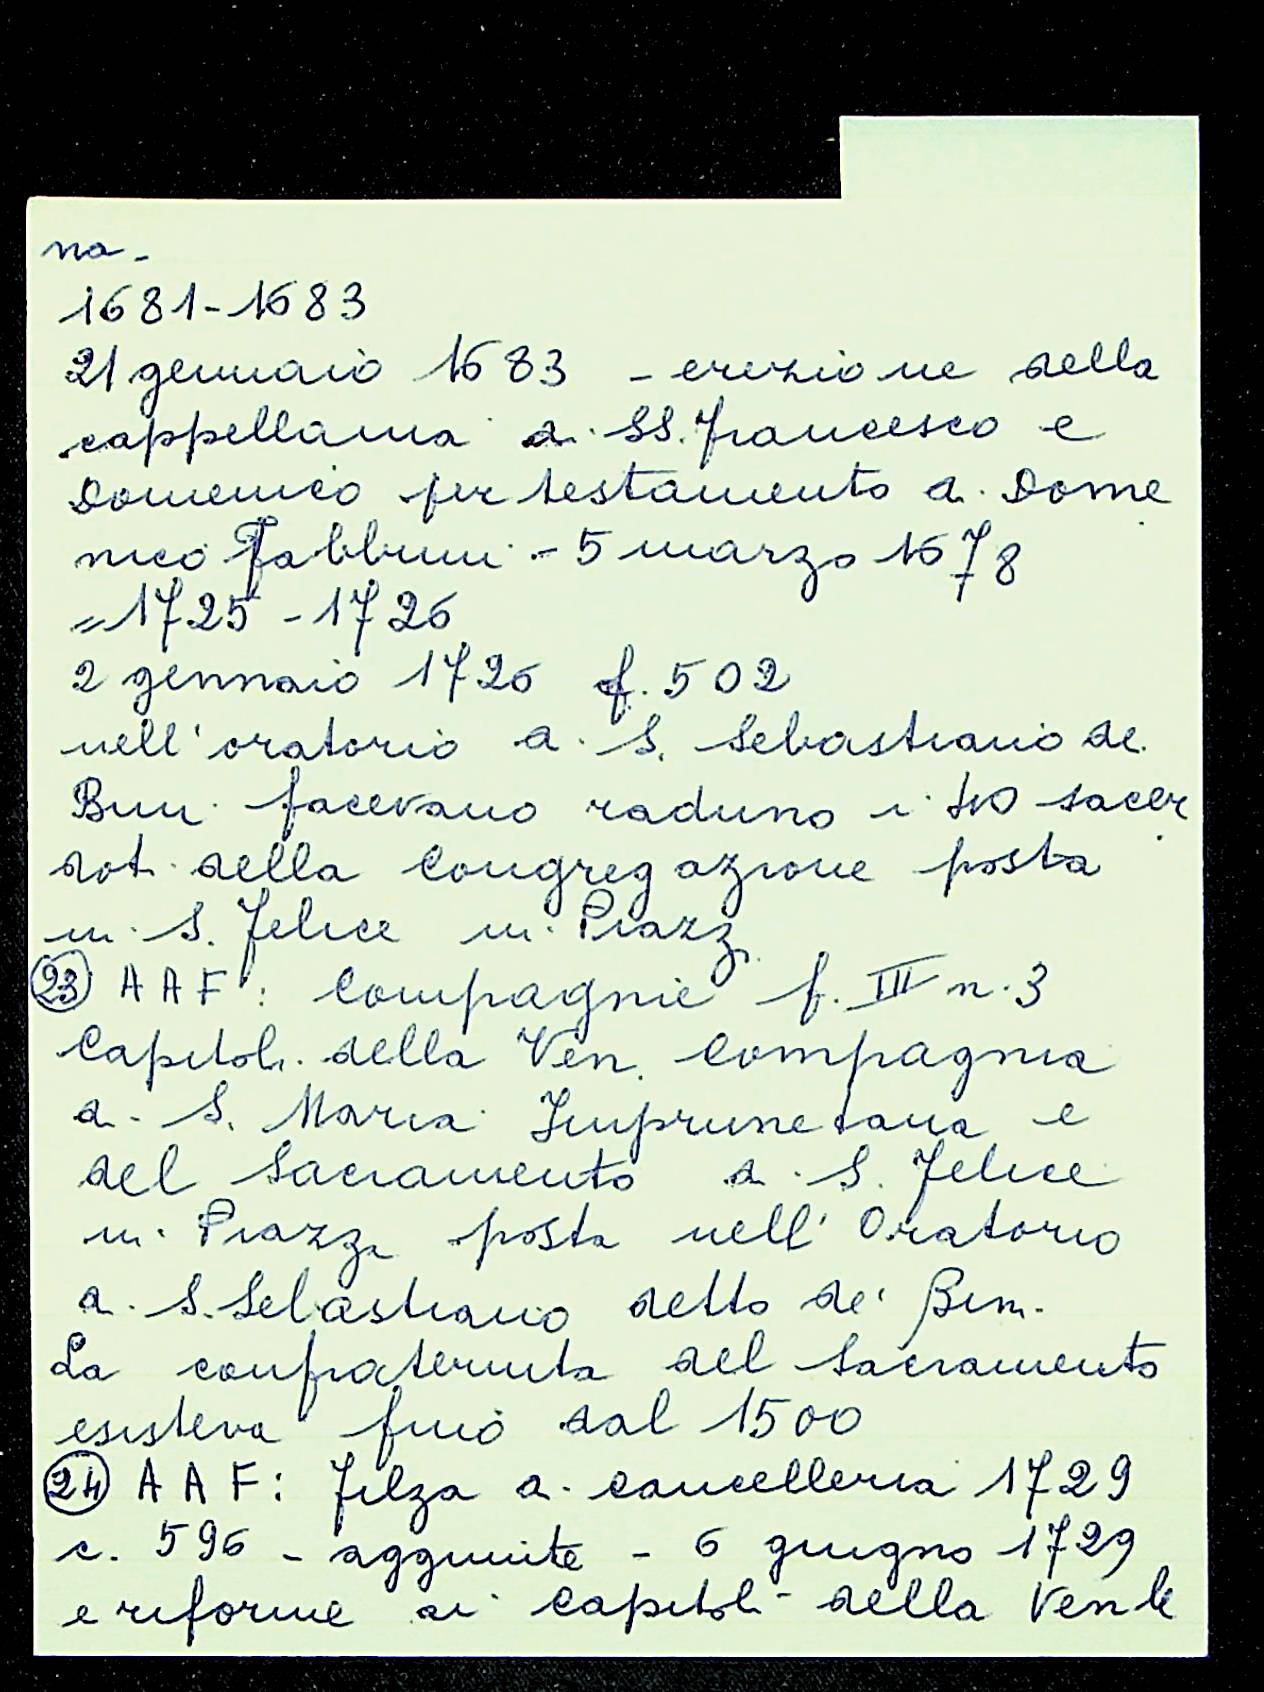 na -
1681-1683
21 gennaio 1683 - erezione della
cappellania di SS. Francesco e
Domenico per testamento di Dome
nico Fabbrini - 5 marzo 1678
= 1725 - 1726
2 gennaio 1726 f. 502
nell'oratorio di S. Sebastiano de
Bini facevano raduno i 40 sacer
doti della Congregazione posta
in S. Felice in Piazz
(23) A A F: Compagnie f. III n. 3
Capitoli della Ven. Compagnia
di S. Maria Imprunetana e
del Sacramento di S. Felice
in Piazza posta nell'Oratorio
di S. Sebastiano detto de' Bini.
La confraternita del Sacramento
esisteva fino dal 1500
(24) A A F: Filza di cancelleria 1729
c. 596 - aggiunte - 6 giugno 1729
e riforme ai Capitoli della Ven le